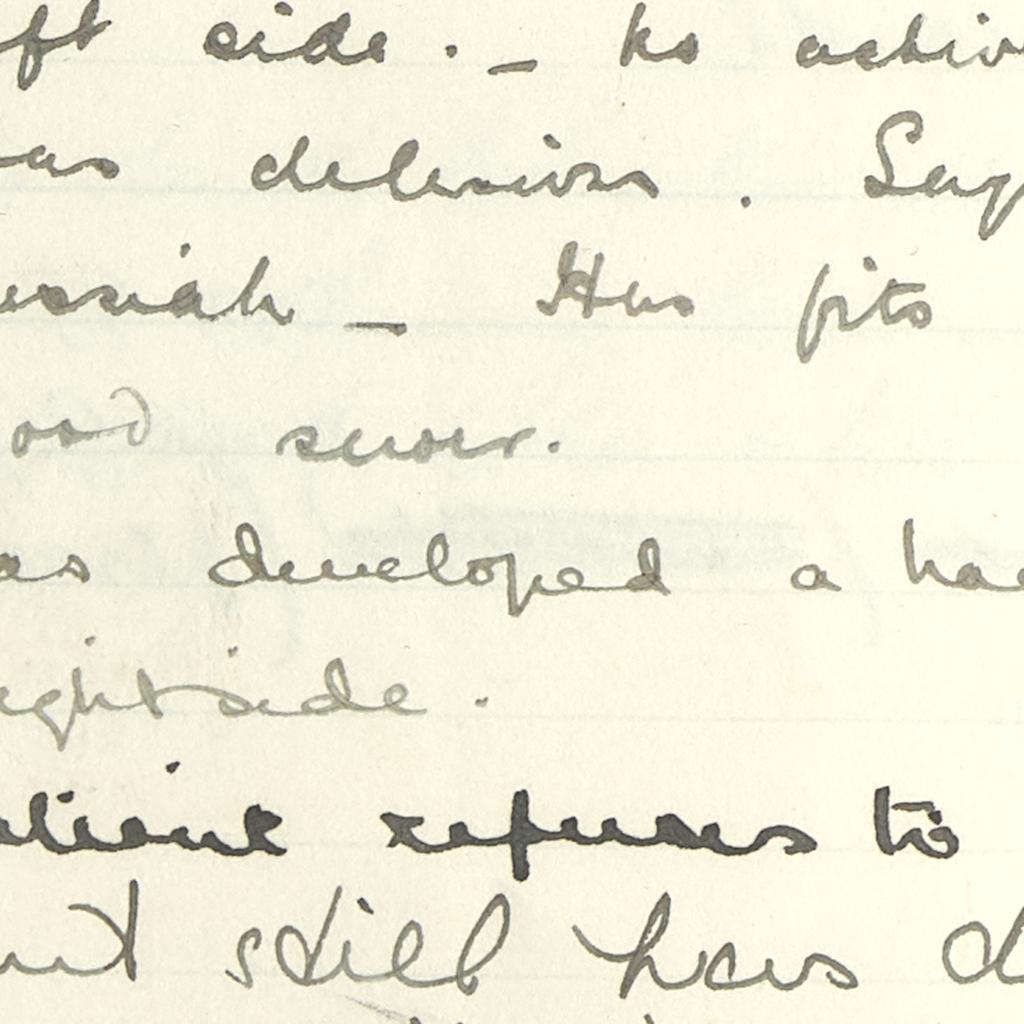 ft side. – No activ
as delusions. Say
essiah – Has fits
ood
as developed a hae
ight side.
atient refuses to
ent still has d